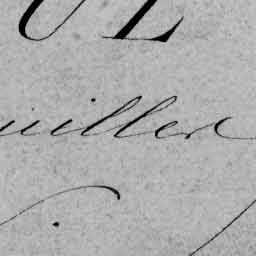 UL
uiller